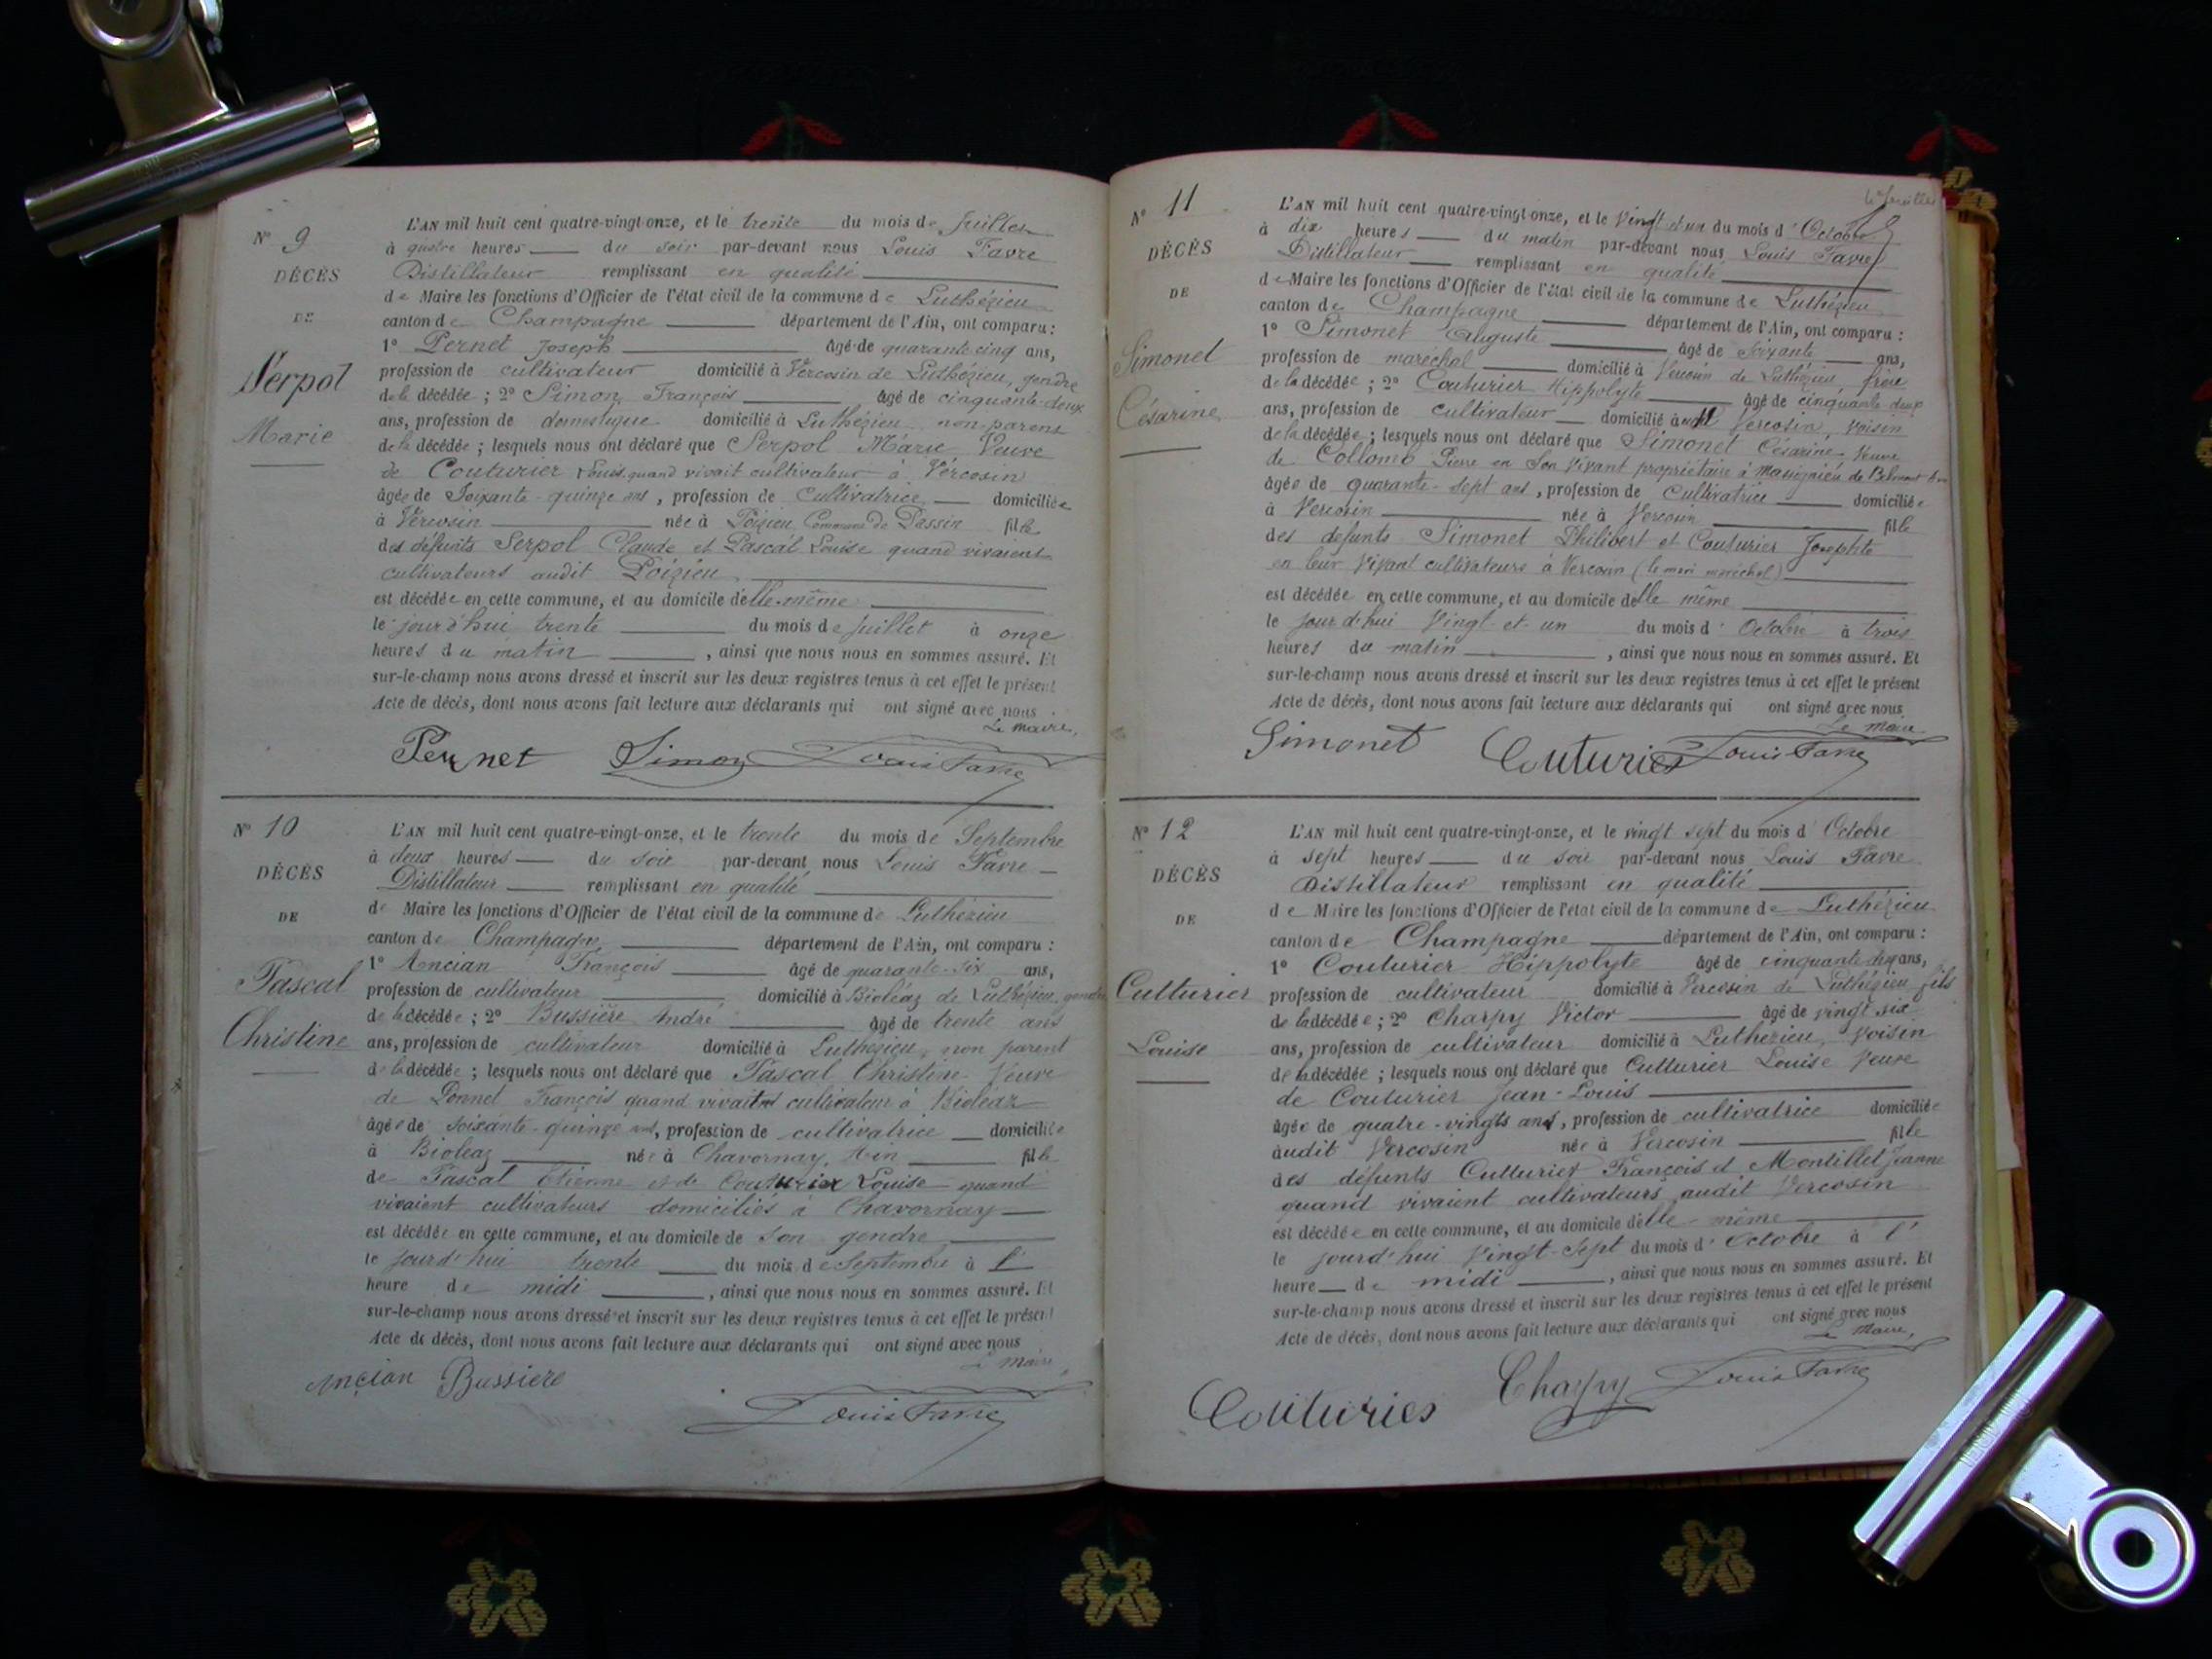 N° 9
DÉCÈS
DE
Serpol
Marie
L'AN mil huit cent quatre-vingt-onze, et le trente du mois de Juillet
à quatre heures du soir par-devant nous Louis Favre
Distillateur remplissant en qualité
de Maire les fonctions d'Officier de l'état civil de la commune de Luthézieu
canton de Champagne département de l'Ain, ont comparu :
1° Pernet Joseph âgé de quarante cinq ans,
profession de cultivateur domicilié à Vercosin de Luthézieu, gendre
de la décédée ; 2° Simon François âgé de cinquante-deux
ans, profession de domestique domicilié à Luthézieu non-parent
de la décédée ; lesquels nous ont déclaré que Serpol Marie Veuve
de Couturier Louis quand vivait cultivateur à Vercosin
âgée de Soixante-quinze ans, profession de cultivatrice domiciliée
à Vercosin née à Poizieu Commune de Passin fille
des défunts Serpol Claude et Pascal Louise quand vivaient
cultivateurs audit Poizieu
est décédée en cette commune, et au domicile d'elle-même
le jourd'hui trente du mois de Juillet à onze
heures du matin, ainsi que nous nous en sommes assuré. Et
sur-le-champ nous avons dressé et inscrit sur les deux registres tenus à cet effet le présent
Acte de décès, dont nous avons fait lecture aux déclarants qui ont signé avec nous
Le maire,
Pernet Simon Louis Favre
N° 10
DÉCÈS
DE
Pascal
Christine
L'AN mil huit cent quatre-vingt-onze, et le trente du mois de Septembre
à deux heures du soir par-devant nous Louis Favre
Distillateur remplissant en qualité
de Maire les fonctions d'Officier de l'état civil de la commune de Luthézieu
canton de Champagne département de l'Ain, ont comparu :
1° Ancian François âgé de quarante-six ans,
profession de cultivateur domicilié à Bioléaz de Luthézieu, gendre
de la décédée ; 2° Bussière André âgé de trente ans
ans, profession de cultivateur domicilié à Luthézieu, non parent
de la décédée ; lesquels nous ont déclaré que Pascal Christine Veuve
de François quand vivait cultivateur à Bioléaz
âgée de soixante-quinze ans, profession de cultivatrice domiciliée
à Bioléaz née à Chavornay, Ain fille
de Pascal Etienne et de Couturier Louise quand
vivaient cultivateurs domiciliés à Chavornay
est décédée en cette commune, et au domicile de son gendre
le jourd'hui trente du mois de Septembre à 1'
heure de midi, ainsi que nous nous en sommes assuré. Et
sur-le-champ nous avons dressé et inscrit sur les deux registres tenus à cet effet le présent
Acte de décès, dont nous avons fait lecture aux déclarants qui ont signé avec nous
Le maire,
Ancian Bussiere
Louis Favre
N° 11
DÉCÈS
DE
Simonet
Césarine
L'AN mil huit cent quatre-vingt-onze, et le Vingt et un du mois d'Octobre
à dix heures du matin par-devant nous Louis Favre
Distillateur remplissant en qualité
de Maire les fonctions d'Officier de l'état civil de la commune de Luthézieu
canton de Champagne département de l'Ain, ont comparu :
1° Simonet Auguste âgé de Soixante ans,
profession de maréchal domicilié à Vercosin de Luthézieu, frère
de la décédée ; 2° Couturier Hippolyte âgé de cinquante deux
ans, profession de cultivateur domicilié à Vercosin, voisin
de la décédée ; lesquels nous ont déclaré que Simonet Césarine Veuve
de Collomb Pierre en son vivant propriétaire à Massignieu de Belmont
âgée de quarante-sept ans, profession de Cultivatrice domiciliée
à Vercosin née à Vercosin fille
des defunts Simonet Philibert et Couturier Josephte
en leur vivant cultivateurs à Vercosin (le mari maréchal)
est décédée en cette commune, et au domicile d'elle même
le jourd'hui Vingt et un du mois d'Octobre à trois
heures du matin, ainsi que nous nous en sommes assuré. Et
sur-le-champ nous avons dressé et inscrit sur les deux registres tenus à cet effet le présent
Acte de décès, dont nous avons fait lecture aux déclarants qui ont signé avec nous
Le maire
Simonet Couturier Louis Favre
N° 12
DÉCÈS
DE
Culturier
Louise
L'AN mil huit cent quatre-vingt-onze, et le vingt sept du mois d'Octobre
à sept heures du soir par-devant nous Louis Favre
Distillateur remplissant en qualité
de Maire les fonctions d'Officier de l'état civil de la commune de Luthézieu
canton de Champagne département de l'Ain, ont comparu :
1° Couturier Hippolyte âgé de cinquante ans,
profession de cultivateur domicilié à Vercosin de Luthézieu fils
de la décédée ; 2° Charpy Victor âgé de vingt six
ans, profession de cultivateur domicilié à Luthézieu, voisin
de la décédée ; lesquels nous ont déclaré que Culturier Louise Veuve
de Couturier Jean-Louis
âgée de quatre-vingts ans, profession de cultivatrice domiciliée
audit Vercosin née à Vercosin fille
des défunts Culturier François et Montillet Jeanne
quand vivaient cultivateurs audit Vercosin
est décédée en cette commune, et au domicile d'elle-même
le jourd'hui Vingt-Sept du mois d'Octobre à 1'
heure de midi, ainsi que nous nous en sommes assuré. Et
sur-le-champ nous avons dressé et inscrit sur les deux registres tenus à cet effet le présent
Acte de décès, dont nous avons fait lecture aux déclarants qui ont signé avec nous
Le Maire,
Couturier Charpy Louis Favre